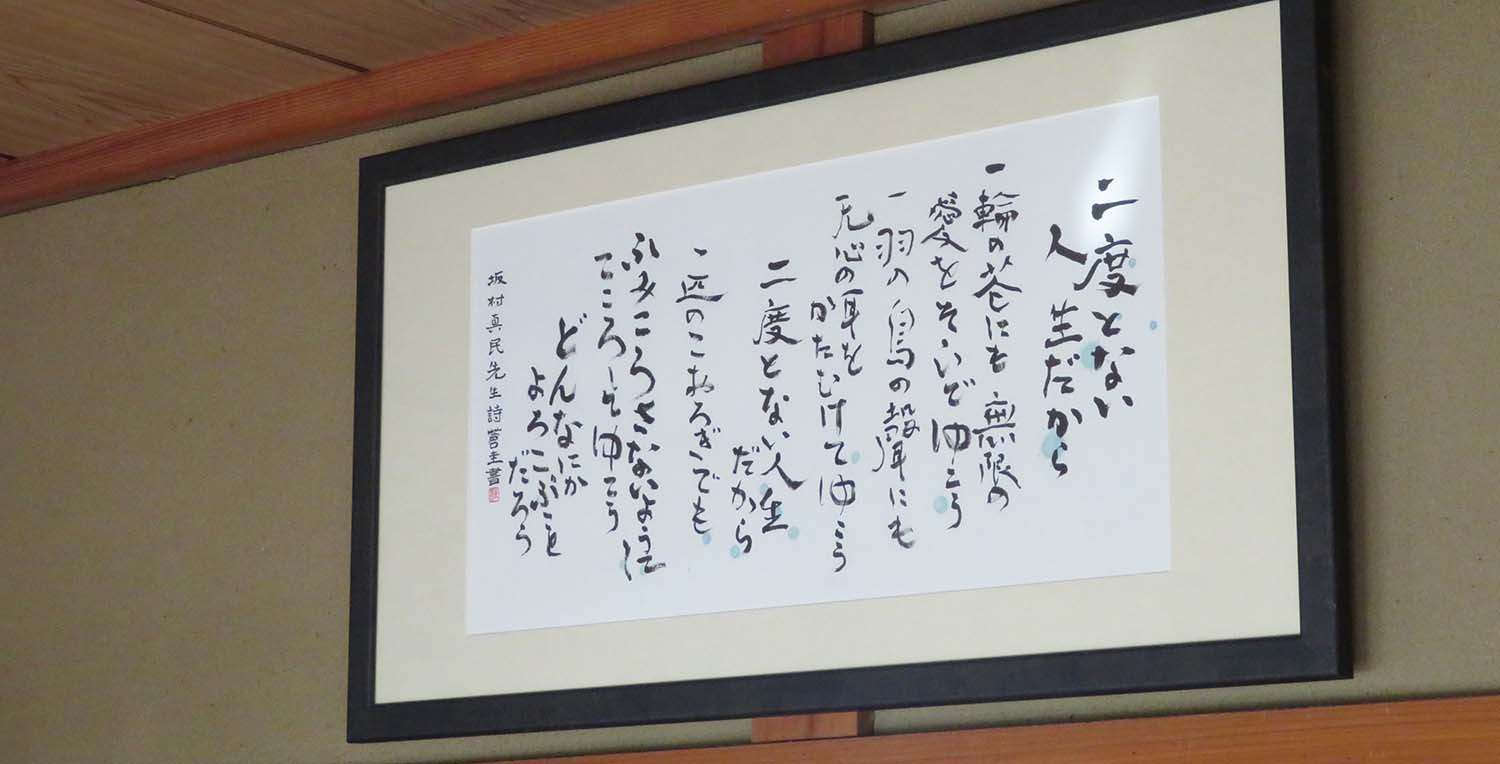 二度とない
人生だから
一輪の花にも無限の
愛をそゝいでゆこう
一羽の鳥の聲にも
无心の耳を
かたむけてゆこう
二度とない人生
だから
一匹のこおろぎでも
ふみころさないように
こころしてゆこう
どんなにか
よろこぶことも
だろう
坂村真民先生詩 書